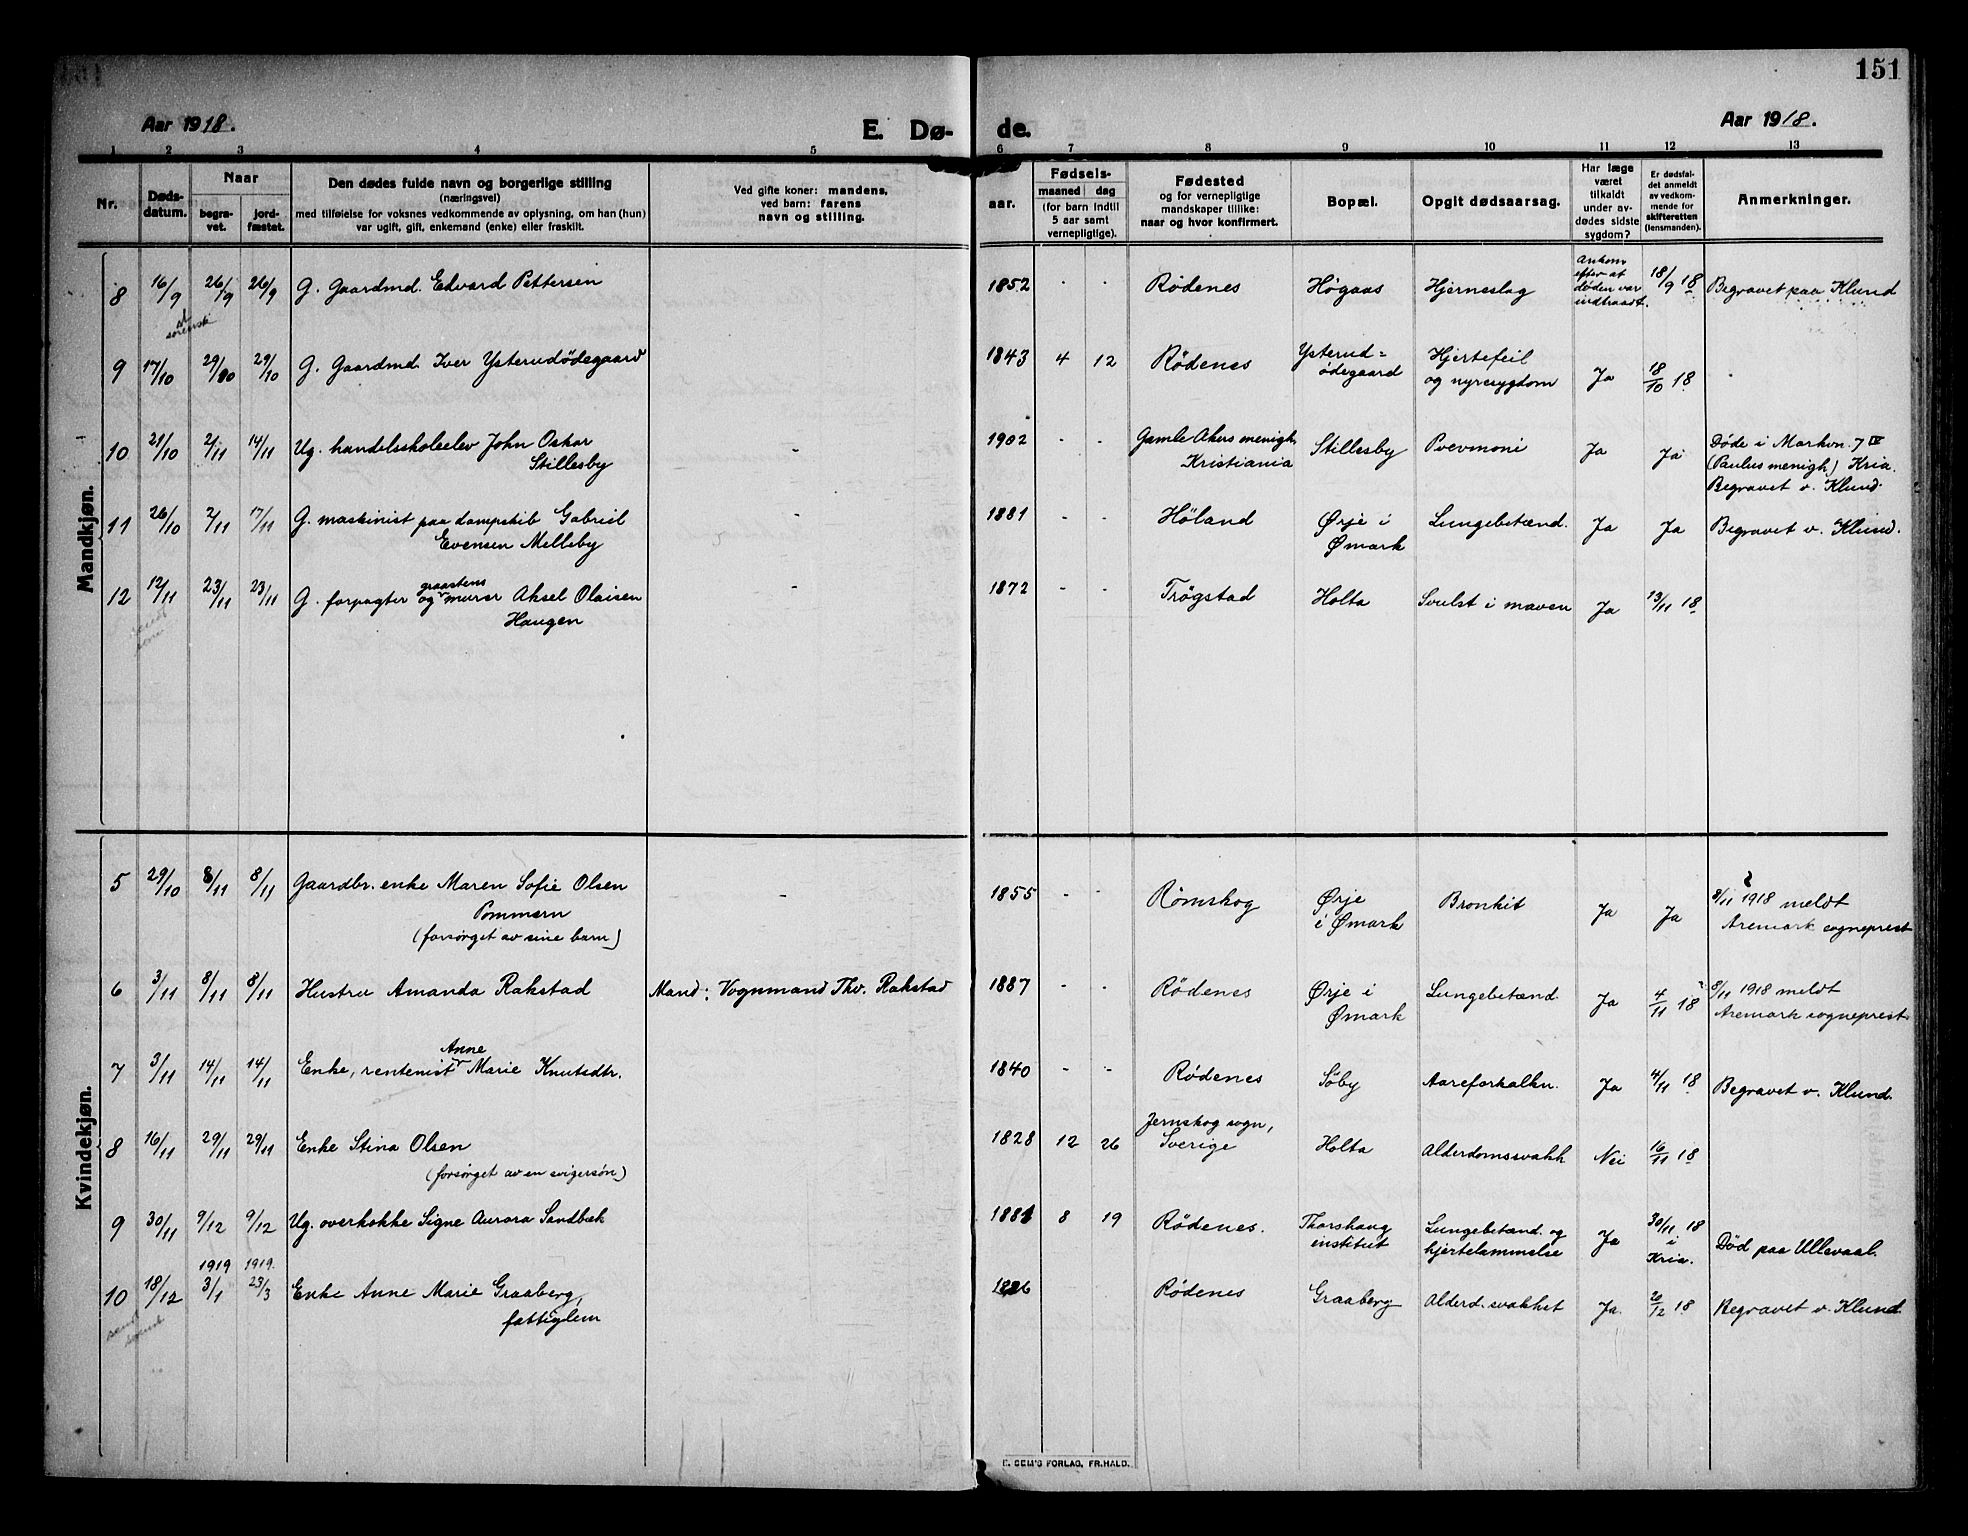 151
Aar 1918.
E. Dø-
de.
Aar 1918.
1 2 3 4 5 6 7 8 9 10 11 12 13
Nr.
Døds-
datum.
Naar
begra-
vet.
jord-
fæstet.
Den dødes fulde navn og borgerlige stilling
(næringsvei)
med tilføielse for voksnes vedkommende av oplysning, om han (hun)
var ugift, gift, enkemand (enke) eller fraskilt.
Ved gifte koner: mandens,
ved barn: farens
navn og stilling.
Fødsels-
aar.
maaned dag
(for barn indtil
5 aar samt
vernepligtige).
Fødested
og for vernepligtige
mandskaper tillike:
naar og hvor konfirmert.
Bopæl.
Opgit dødsaarsag.
Har læge
været
tilkaldt
under av-
dødes sidste
sygdom?
Er dødsfal-
det anmeldt
av vedkom-
mende for
skifteretten
(lensmanden).
Anmerkninger.
Mandkjøn.
8 16/9 26/9 26/9 G. Gaardmd. Edvard Pettersen 1852 . . Rödenes Högaas Hjerneslag Ankom
efter at
døden var
indtraadt. 18/9 18 Begravet paa Klund
9 17/10 29/10 29/10 G. Gaardmd. Iver Ysterudödegaard 1843 4 12 Rödenes Ysterud=
ödegaard Hjertefeil
og nyresygdom Ja 18/10 18
10 21/10 2/11 14/11 Ug. handelsskoleelev John Oskar
Stillesby - 1902 - - Gamle Akers menigh.
Kristiania Stillesby Pnevmoni Ja Ja Døde i Markvn. 7 IV
(Paulus menigh) Kria.
Begravet v. Klund.
11 26/10 2/11 17/11 G. maskinist paa dampskib Gabriel
Evensen Melleby - 1881 - - Höland Ørje i
Ømark Lungebetænd. Ja Ja Begravet v. Klund.
12 12/11 23/11 23/11 G. forpagter og graastens murer Aksel Olaisen
Haugen - 1872 - - Trögstad Holta Svulst i maven Ja 13/11 18
Kvindekjøn.
5 29/10 8/11 8/11 Gaardbr. enke Maren Sofie Olsen
Pommern
(forsørget av sine barn) - 1855 - - Römskog Ørje
i Ømark Bronkit Ja Ja 8/11 1918 meldt
Aremark sogneprest
6 3/11 8/11 8/11 Hustru Amanda Rakstad Mand: Vognmand Thv. Rakstad 1887 - - Rödenes Ørje i
Ømark Lungebetænd. Ja 4/11 18 8/11 1918 meldt
Aremark sogneprest
7 3/11 14/11 14/11 Enke, rentenist Anne Marie Knutsdtr. 1840 - - Rödenes Söby Aareforkalkn. Ja 4/11 18 Begravet v. Klund.
8 16/11 29/11 29/11 Enke Stina Olsen
(forsørget av en svigersøn) 1828 12 26 Jernskog sogn,
Sverige Holta Alderdomssvakh Nei 16/11 18
9 30/11 9/12 9/12 Ug. overkokke Signe Aurora Sandbæk 1881 8 19 Rödenes. Thorshaug
institut Lungebetænd. og
hjertelammelse Ja 30/11 18
i
Kria. Død paa Ullevaal.
10 18/12 1919 3/1 1919. 23/3 Enke Anne Marie Graaberg,
fattiglem Rödenes Graaberg Alderd. svakhet Ja. 20/12 18 Begravet v. Klund.
E. SEM'S FORLAG, FR.HALD.